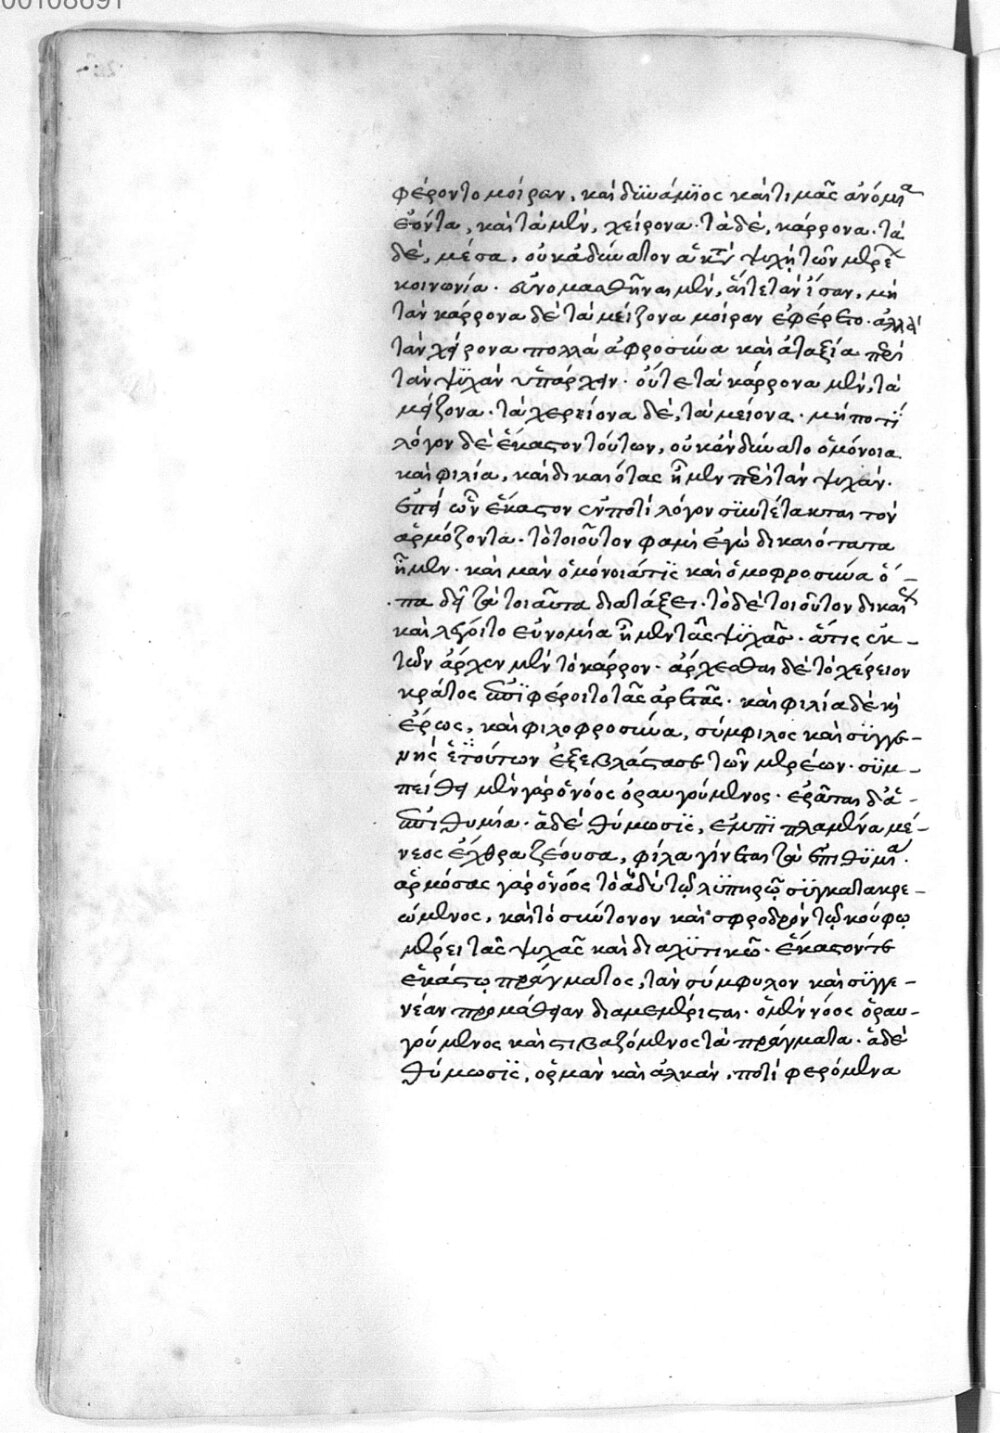 00108691
φέροντο μοίραν, καὶ δϋνάμϊος καὶ τιμᾶς ἀνόμοια
ἐόντα, καὶ τὰ μὲν, χείρονα· τὰ δὲ, κάρρονα· τὰ
δὲ, μέσα, οὐκ ἀδύνατον ἁ κατὰ ψυχὴ τῶν μερέων
κοινωνία· συνομααθῆναι μὲν, ἅτε τὰν ἴσαν, μὴ
τὰν κάρρονα δὲ τὰ μείζονα μοίραν ἐφέρετο· ἀλλὰ
τὰν χείρονα πολλὰ ἀφροσύνα καὶ ἀταξία περὶ
τὰν ψϋχὰν ὑπάρχειν· οὔτε τὰ κάρρονα μὲν, τὰ
μείζονα· τὰ χερείονα δὲ, τὰ μείονα· μὴ ποτὶ
λόγον δὲ ἕκαστον τούτων, οὐκ ἂν δύνατο ὁμόνοια
καὶ φιλία, καὶ δικαιότας ἦμεν περὶ τὰν ψυχάν·
ἐπεὶ ὧν ἕκαστον ἐν ποτὶ λόγον σϋντέτακται τὸν
ἁρμόζοντα· τὸ τοιοῦτον φαμὶ ἐγὼ δικαιότατα
ἦμεν· καὶ μὰν ὁμόνοιά τϊς καὶ ὁμοφροσύνα ὀ-
πα δεῖ τᾷ τοιαῦτα διατάξει· τὸ δὲ τοιοῦτον δικαίως
καὶ λέγοιτο εὐνομία ἦμεν τᾶς ψϋχᾶς· ἅτις ἐκ-
τῶν ἄρχεν μὲν τὸ κάρρον· ἄρχεσθαι δὲ τὸ χέρειον
κράτος ἐπϊφέροιτο τᾶς ἀρετᾶς· καὶ φιλία δὲ κὴ
ἔρως, καὶ φιλοφροσύνα, σύμφιλος καὶ σϋγγε-
νὴς ἐκ τούτων ἐξεβλάστασε τῶν μερέων· σϋμ-
πείθει μὲν γὰρ ὁ νόος ὁραυγούμενος· ἐρᾶται δ' ἁ-
ἐπιθυμία· ἁ δὲ θύμωσϊς, ἐμπϊπλαμένα μέ-
νεος ἔχθρα ζέουσα, φίλα γίνεται τᾷ ἐπιθϋμίᾳ·
ἁρμόσας γὰρ ὁ νόος τὸ ἁδὺ τῷ λϋπηρῷ σϋγκατακρε-
ώμενος, καὶ τὸ σύντονον καὶ σφοδρὸν τῷ κούφῳ
μέρει τᾶς ψυχᾶς καὶ διαχϋτικῶ· ἕκαστόν τε
ἑκάστῳ πράγματος, τὰν σύμφυλον καὶ σϋγγε-
νέαν προμάθειαν διαμεμέρισται· ὁ μὲν νόος ὁραυ-
γούμενος καὶ στιβαζόμενος τὰ πράγματα· ἁ δὲ
θύμωσϊς, ὁρμὰν καὶ ἀλκὰν, ποτὶ φερόμενα